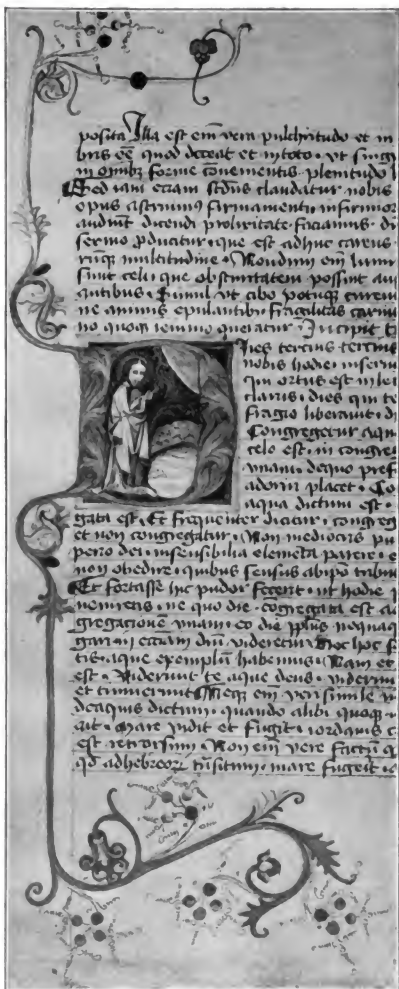 posita Illa est em vera pulchritudo et in
bris eē quod deceat et in toto · vt sing
in omīb forme cōuenientis plenitudo l
Sed iam eciam scdus claudatur nobis
opus astruimus firmamenti infirmior
audiunt dicendi prolixitate faciamus · di
sermo pducitur · que est adhuc careus
multitudine · Nondum em lumi
sunt celi que obscuritatem possint au
Simul vt cibo potuq careni
ne animis epulantib fragilitas carni
no quoq ieiuno queratur Incipit t
Dies tercius tercius
nobis hodie · in sermo
qui ortus est in le
claris · dies qui te
fragio liberauit · di
Congregetur aqu
celo est · in congre
vnam · de quo pref
adoriri placet · Co
aqua dictum est ·
gata est · Et frequenter dicitur · congreg
et non congregatur · Non mediocris pu
perio dei · insensibilia elemēta parere · e
non obedire · quibus sensus ab ipō tribu
Et fortasse hic pudor fecerit · ut hodie
ne quo die · cōgregata est a
gregacionē vnam · eo die pplus nequaq
in eccām dni videretur Hoc loc
tis · aque exemplū habemus · Nam et
est · Viderunt te aque deus · viderun
et timuerunt Neq em veri simile v
de aquis dictum · quando alibi quoq
ait · Mare vidit et fugit · iordanis c
est retrorsum · Non em vere factū q
qd ad hebreor trāsitum · mare fugerit · i